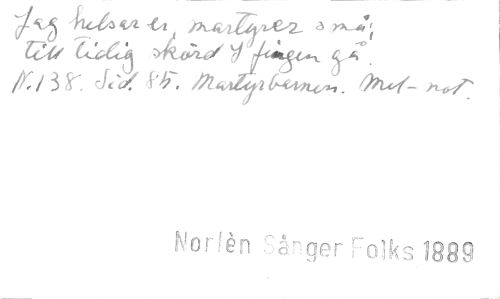 Jag helsar er, martyrer små;
till tidig skörd I fingen gå.
N. 138. Sid. 85. Martyrbarnen. Mel-not.
Norlèn Sånger Folks 1889